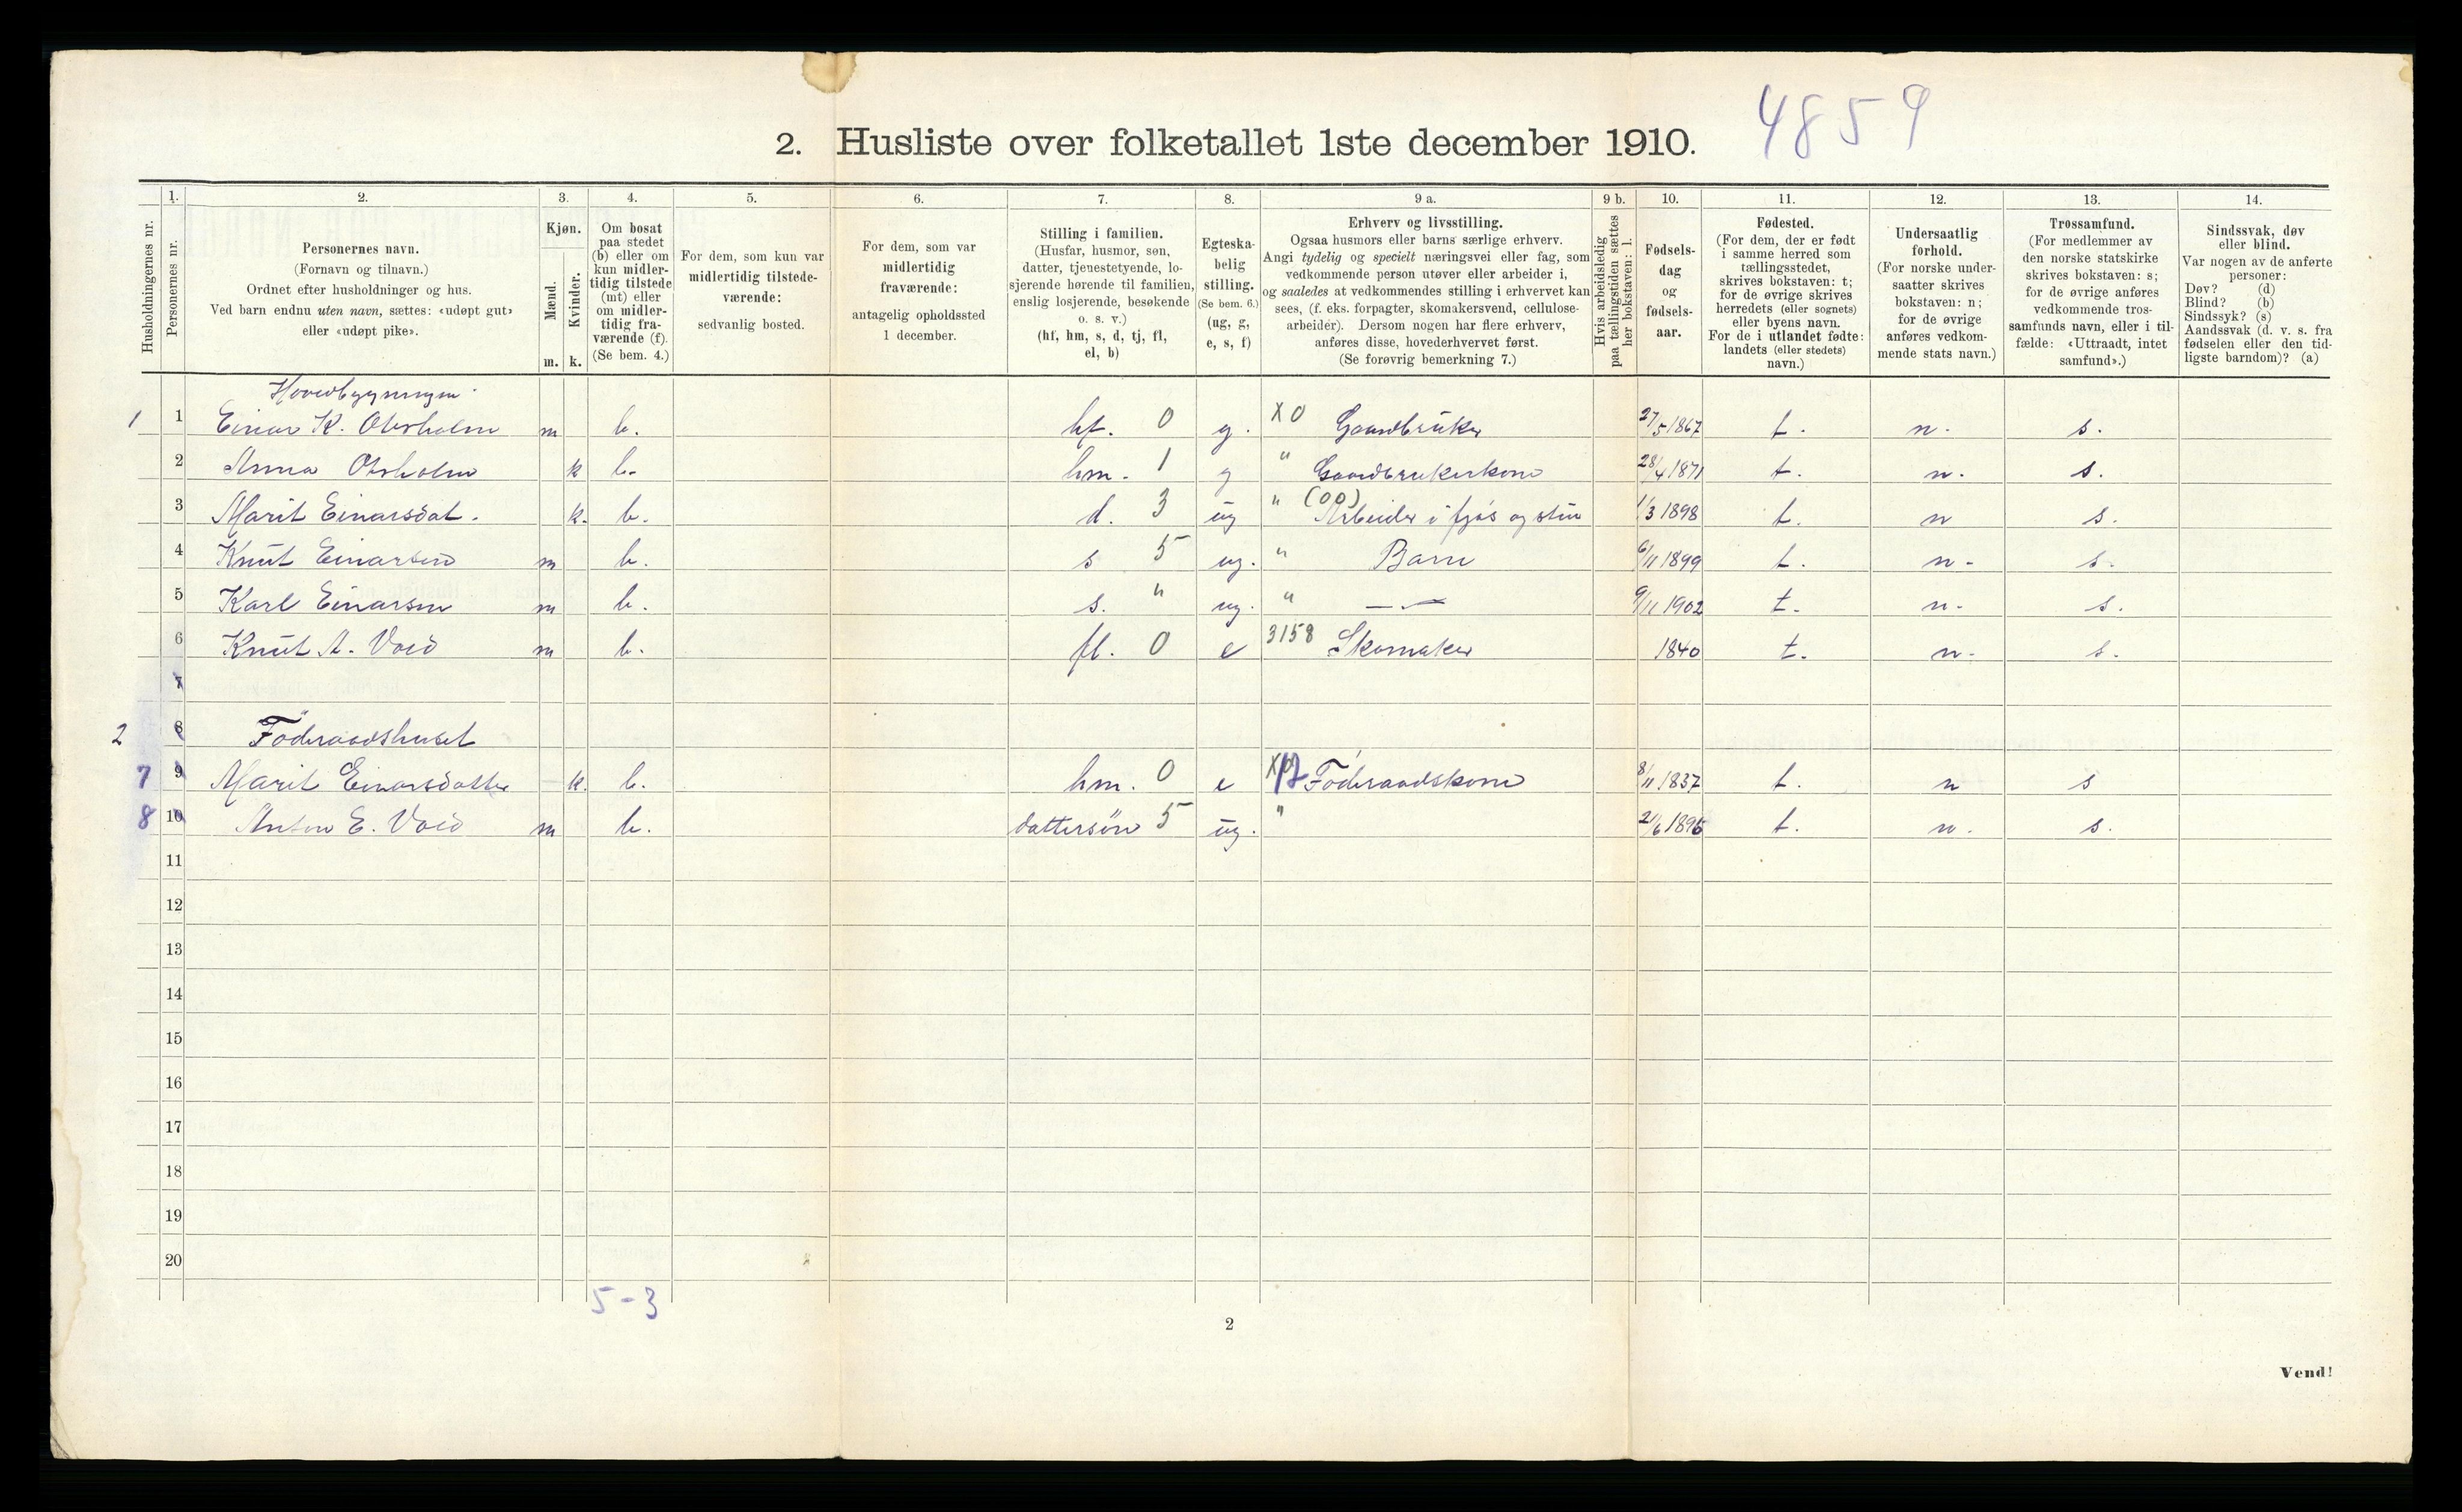 4859
2. Husliste over folketallet 1ste december 1910.
Husholdningernes nr.
1. Personernes nr.
2. Personernes navn.
(Fornavn og tilnavn.)
Ordnet efter husholdninger og hus.
Ved barn endnu uten navn, sættes: «udøpt gut»
eller «udøpt pike».
3. Kjøn.
Mænd. m.
Kvinder. k.
4. Om bosat
paa stedet
(b) eller om
kun midler-
tidig tilstede
(mt) eller
om midler-
tidig fra-
værende (f).
(Se bem. 4.)
5. For dem, som kun var
midlertidig tilstede-
værende:
sedvanlig bosted.
6. For dem, som var
midlertidig
fraværende:
antagelig opholdssted
1 december.
7. Stilling i familien.
(Husfar, husmor, søn,
datter, tjenestetyende, lo-
sjerende hørende til familien,
enslig losjerende, besøkende
o. s. v.)
(hf, hm, s, d, tj, fl,
el, b)
8. Egteska-
belig
stilling.
(Se bem. 6.)
(ug, g,
e, s, f)
9 a. Erhverv og livsstilling.
Ogsaa husmors eller barns særlige erhverv.
Angi tydelig og specielt næringsvei eller fag, som
vedkommende person utøver eller arbeider i,
og saaledes at vedkommendes stilling i erhvervet kan
sees, (f. eks. forpagter, skomakersvend, cellulose-
arbeider). Dersom nogen har flere erhverv,
anføres disse, hovederhvervet først.
(Se forøvrig bemerkning 7.)
9 b. Hvis arbeidsledig
paa tællingstiden sættes
her bokstaven: l.
10. Fødsels-
dag
og
fødsels-
aar.
11. Fødested.
(For dem, der er født
i samme herred som
tællingsstedet,
skrives bokstaven: t;
for de øvrige skrives
herredets (eller sognets)
eller byens navn.
For de i utlandet fødte:
landets (eller stedets)
navn.)
12. Undersaatlig
forhold.
(For norske under-
saatter skrives
bokstaven: n;
for de øvrige
anføres vedkom-
mende stats navn.)
13. Trossamfund.
(For medlemmer av
den norske statskirke
skrives bokstaven: s;
for de øvrige anføres
vedkommende tros-
samfunds navn, eller i til-
fælde: «Uttraadt, intet
samfund».)
14. Sindssvak, døv
eller blind.
Var nogen av de anførte
personer:
Døv? (d)
Blind? (b)
Sindssyk? (s)
Aandssvak (d. v. s. fra
fødselen eller den tid-
ligste barndom)? (a)
Hovedbygningen
1 1 Einar K. m b. hf. 0 g. X0 Gaardbruker 27/5 1867 t. n. s.
2 Anna k b. hm. 1 g " Gaardbrukerkone 28/4 1871 t. n. s.
3 Marit Einarsdat. k. b. d. 3 ug " (00) Arbeider i fjøs og stue 1/3 1898 t. n s.
4 Knut Einarsen m b. s 5 ug. " Barn 6/11 1899 t. n. s.
5 Karl Einarsen m b. s. " ug. " — " — 9/11 1902 t. n. s.
6 Knut A. Vold m b. fl. 0 e 3158 Skomaker 1840 t. n. s.
7
2 8 Föderaadshuset
7 9 Marit Einarsdatter k. b. hm. 0 e Föderaadskone 8/11 1837 t. n s
8 10 Anton E. Vold m b. dattersön 5 ug. " 2/6 1895 t. n. s.
11
12
13
14
15
16
17
18
19
20
5-3
2
Vend!